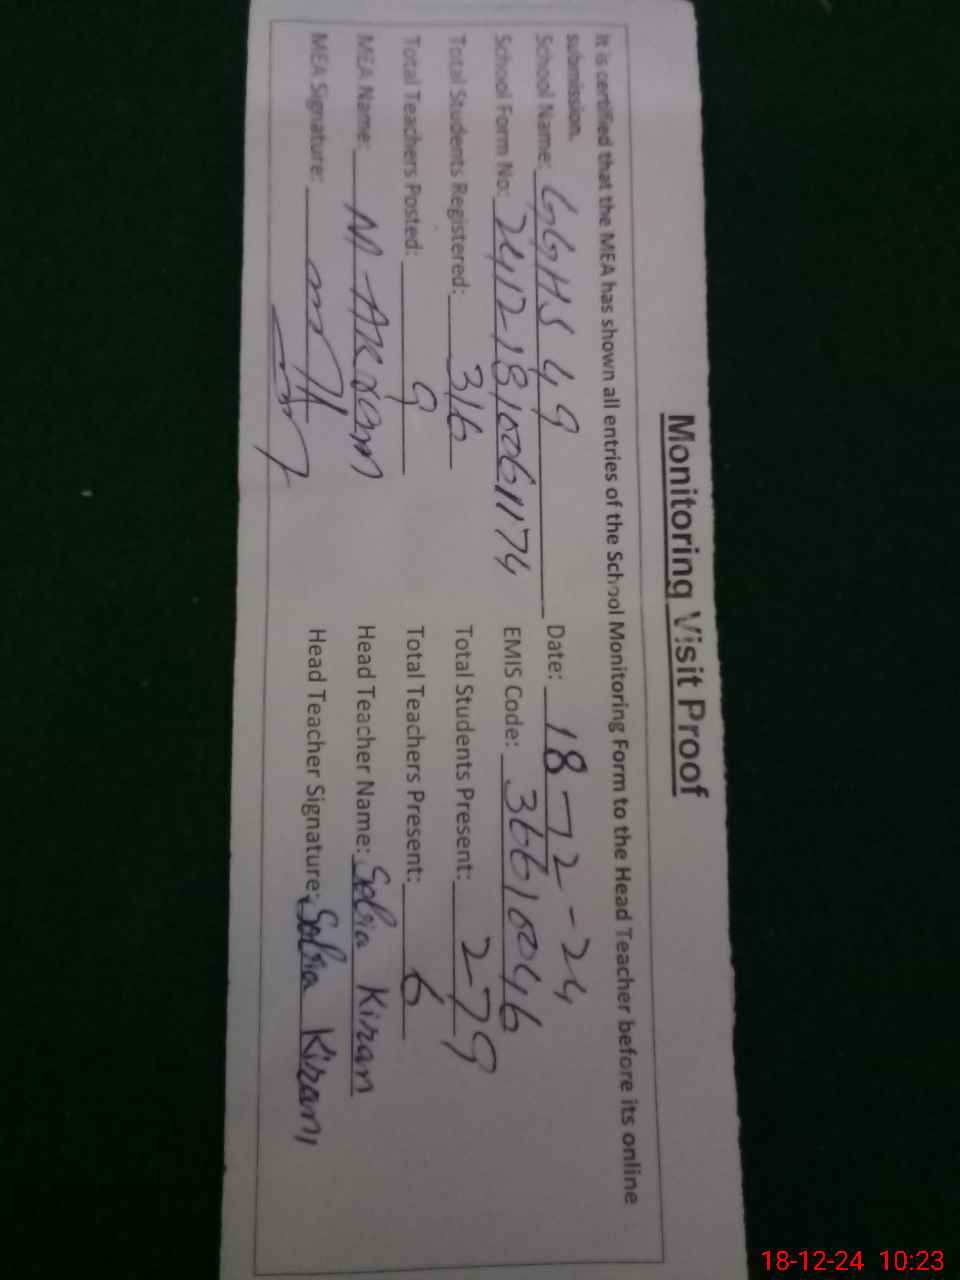 Monitoring Visit Proof
It is certified that the MEA has shown all entries of the School Monitoring Form to the Head Teacher before its online
submission.
School Name: GGHS 49 Date: 18-12-24
School Form No: 2412-1810061174 EMIS Code: 36610046
Total Students Registered: 316 Total Students Present: 279
Total Teachers Posted: 9 Total Teachers Present: 6
MEA Name: M Akram Head Teacher Name: Sobia Kiran
MEA Signature: Head Teacher Signature: Sobia Kiran
18-12-24 10:23